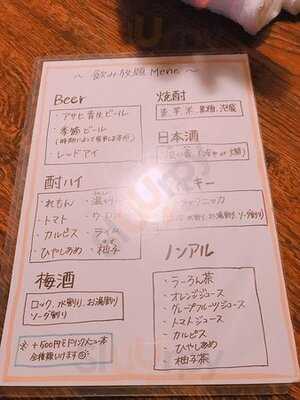 ～ 飲み放題 Menu ～
Beer
・アサヒ 生ビール
・季節ビール
・レッドアイ
酎ハイ
・れもん
・トマト
・カルピス ・ライム
・ひやしあめ ・柚子
梅酒
ロック、水割り、お湯割り
ソーダ割り
※ +500円でドリンクメニュー本
全種類いけます
焼酎
麦、芋、米、黒糖、泡盛
日本酒
キー
水割り、お湯割り、ソーダ割り
ノンアル
・うーろん茶
・オレンジジュース
・グレープフルーツジュース
・トマトジュース
・カルピス
・ひやしあめ
・柚子茶